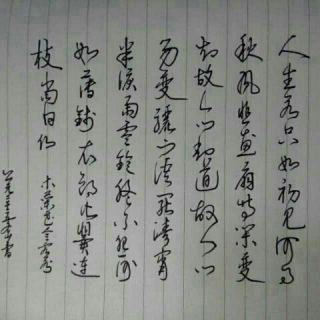 人生若只如初见何事
秋风悲画扇等闲变
却故人心却道故人心
易变骊山语罢清宵
半泪雨零铃终不怨何
如薄锦衣郎比翼连
枝当日愿